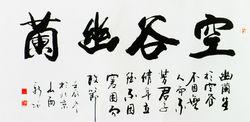 空谷幽蘭
幽蘭生
於空谷
不因無
人而不
芳君子
修身立
德不因
窮困而
改節
於北京